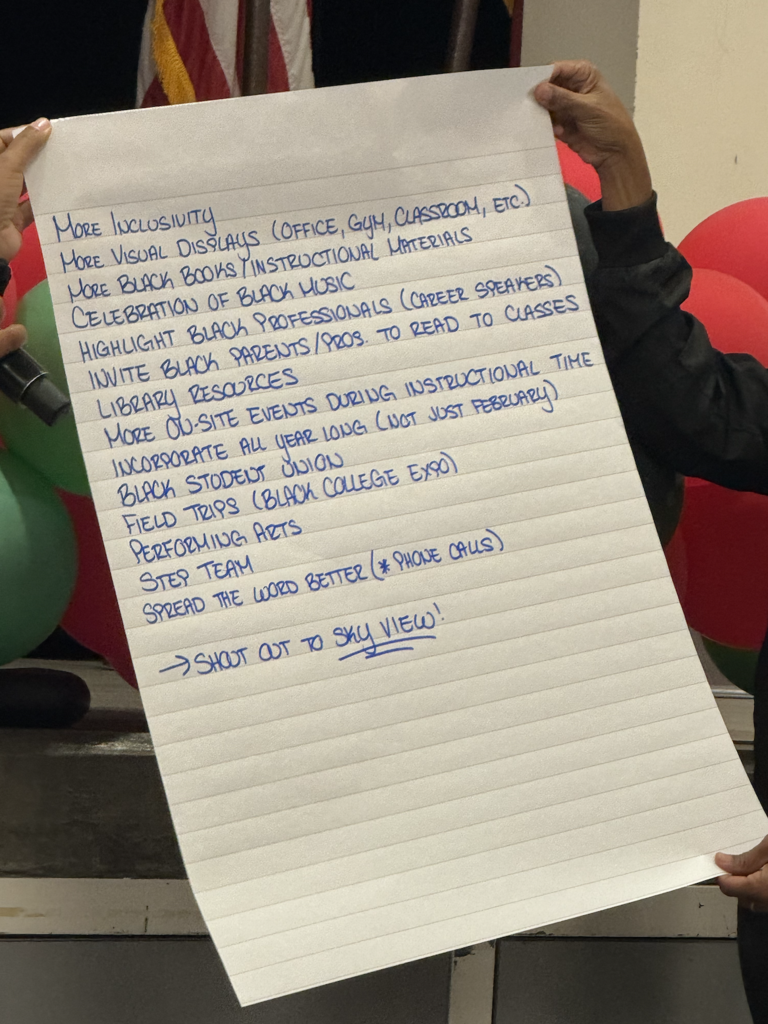 MORE INCLUSIVITY
MORE VISUAL DISPLAYS (OFFICE, GYM, CLASSROOM, ETC.)
MORE BLACK BOOKS/INSTRUCTIONAL MATERIALS
CELEBRATION OF BLACK MUSIC
HIGHLIGHT BLACK PROFESSIONALS (CAREER SPEAKERS)
INVITE BLACK PARENTS/PROS. TO READ TO CLASSES
LIBRARY RESOURCES
MORE ON-SITE EVENTS DURING INSTRUCTIONAL TIME
INCORPORATE ALL YEAR LONG (NOT JUST FEBRUARY)
BLACK STUDENT UNION
FIELD TRIPS (BLACK COLLEGE EXPO)
PERFORMING ARTS
STEP TEAM
SPREAD THE WORD BETTER (* PHONE CALLS)
→ SHOUT OUT TO SKY VIEW!